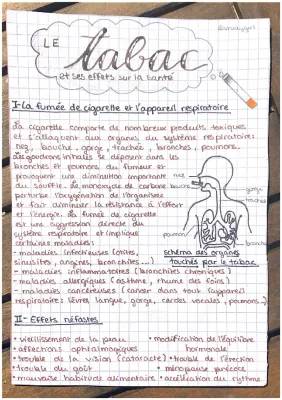 LE
tabac
et ses effets sur la santé
I- La fumée de cigarette et l'appareil respiratoire
La cigarette comporte de nombreux produits toxiques
et s'attaquent aux organes du système respiratoire:
nez, bouche, gorge, trachées, bronches, poumons.
Les goudrons inhalés se déposent dans les
bronches et poumons du fumeur et
provoquent une diminution importante
du souffle. Le monoxyde de carbone
perturbe l'oxygénation de l'organisme
et fait diminuer la résistance à l'effort
et l'énergie. La fumée de cigarette
est une agression directe du
système respiratoire et implique
certaines maladies:
- maladies infectieuses (otites,
sinusites, angines, bronchites...)
- maladies inflammatoires (bronchites chroniques)
- maladies allergiques (asthme, rhume des foins)
- maladies cancéreuses (cancer dans tout l'appareil
respiratoire: lèvres, langue, gorge, cordes vocales, poumons...)
nez
bouche
gorge
trachée
poumon
bronches
schéma des organes
touchés par le tabac
II- Effets néfastes
• vieillissement de la peau
• affections ophtalmologiques
• trouble de la vision (cataracte)
• trouble du goût
• mauvaise habitude alimentaire
• modification de l'équilibre
hormonale
• trouble de l'érection
• ménopause précoce
• accélération du rythme